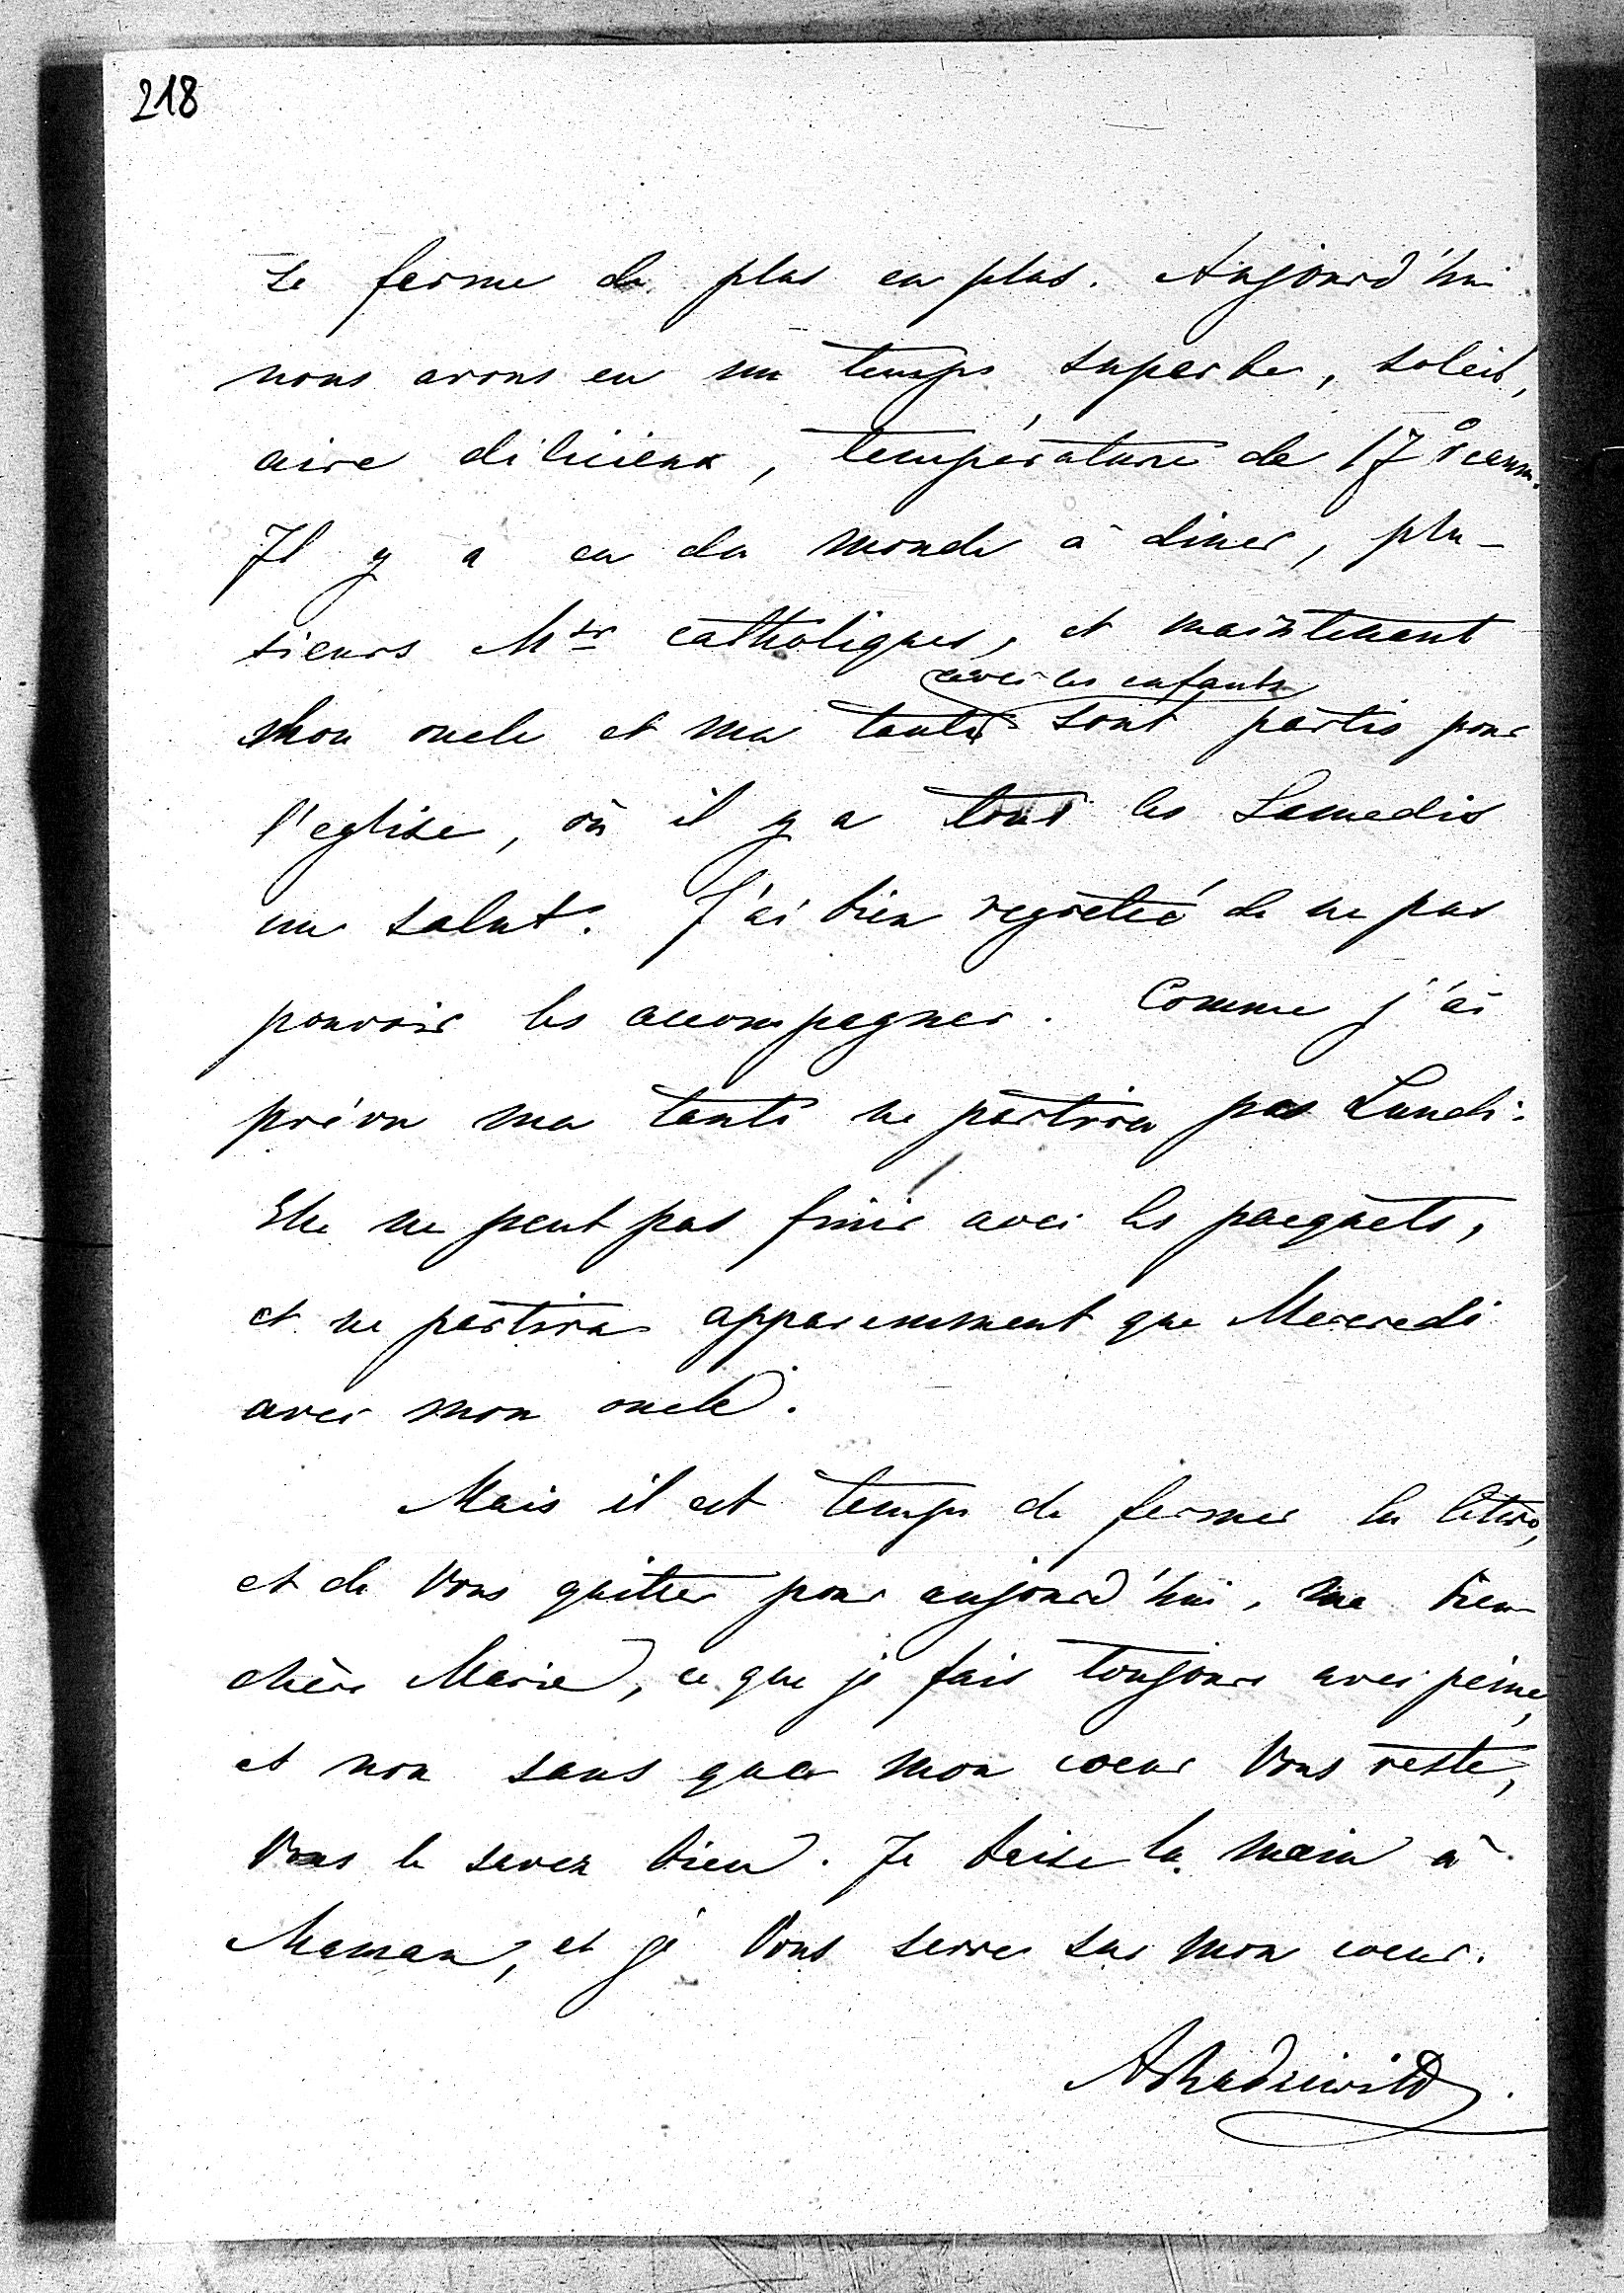 218
se ferme de plus en plus. Aujourd'hui
nous avons eu un temps superbe, soleil,
aire dilicieux, température de 17°
Il y a eu du monde à diner, plu-
sieurs Mrs catholiques, et maintenant
avec les enfants
Mon oncle et ma tante sont partis pour
l'eglise, où il y a tous les Samedis
un salut. J'ai bien regretté de ne pas
pouvoir les accompagner. Comme j'ai
prévu ma tante ne partira pas Lundi.
Elle ne peut pas finir avec les paequets,
et ne partira apparemment que Mercredi
avec mon oncle.
Mais il est temps de fermer la lettre,
et de Vous quitter pour aujourd'hui, ma bien
chère Marie, ce que je fais toujours avec peine,
et non sans que mon coeur Vous reste,
Vous le savez bien. Je baise la main à
Maman, et je Vous serre sur mon coeur.